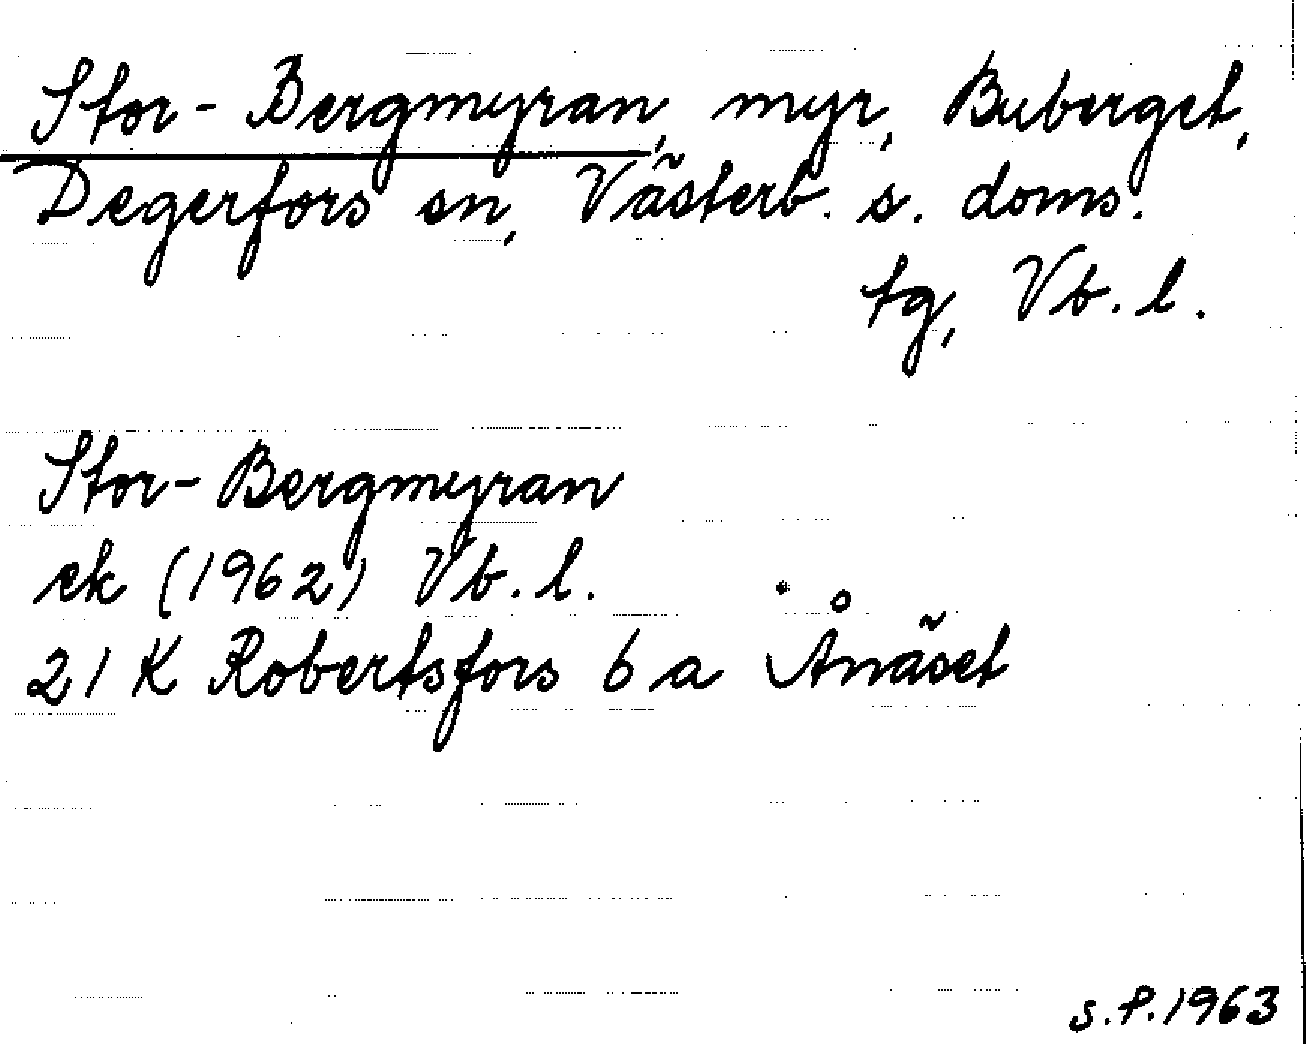 Stor-Bergmyran, myr, Buberget,
Degerfors sn, Västerb. s. doms.
tg, Vb. l.
Stor-Bergmyran
ek (1962) Vb. l.
21 K Robertsfors 6 a Ånäset
s.P.1963